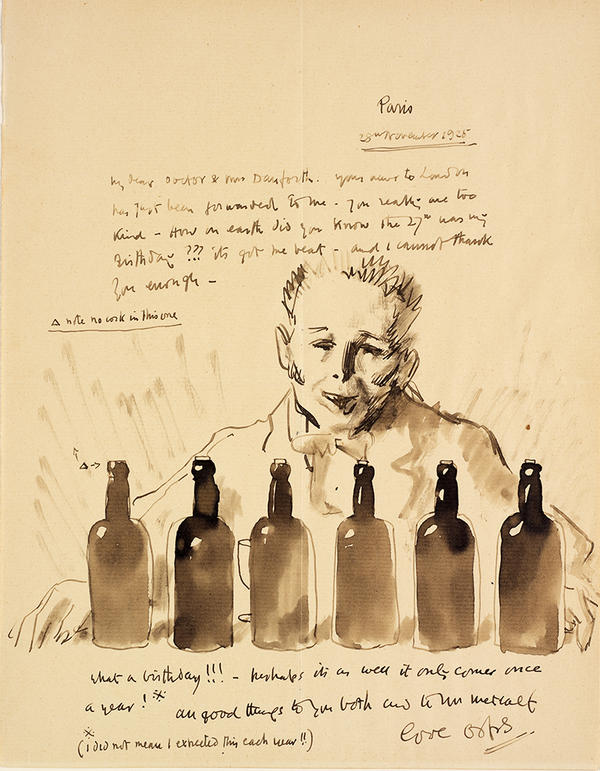 Paris
28th November 1925
My dear Doctor & Mrs Danforth. yours news to London
has just been forwarded to me - you really are too
kind - How on earth did you know the 27th was my
Birthday ??? its got me beat - and I cannot thank
you enough -
△ note no cork in this one
△ →
what a birthday!!! - perhaps its as well it only comes once
a year! ※ all good things to you both and to Mrs Metcalf
love
※
(I did not mean I expected this each year!!)